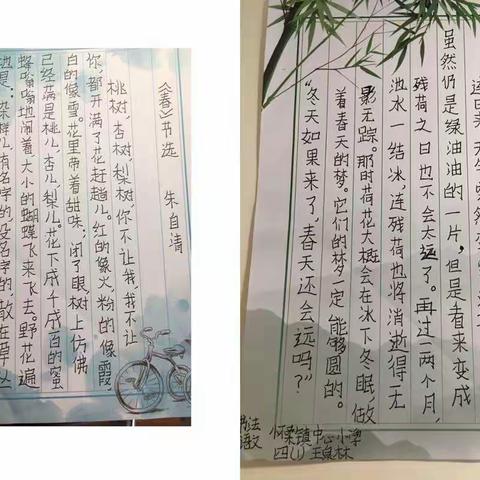 《春》节选 朱自清
桃树,杏树,梨树,你不让我,我不让
你,都开满了花赶趟儿。红的像火,粉的像霞,
白的像雪。花里带着甜味,闭了眼,树上仿佛
已经满是桃儿,杏儿,梨儿。花下成千成百的蜜
蜂嗡嗡地闹着,大小的蝴蝶飞来飞去。野花遍
地是:杂样儿,有名字的,没名字的,散在草丛
虽然仍是绿油油的一片,但是看来变成
残荷之日也不会太远了。再过一两个月,
池水一结冰,连残荷也将消逝得无
影无踪。那时荷花大概会在冰下冬眠,做
着春天的梦。它们的梦一定能够圆的。
“冬天如果来了,春天还会远吗?”
书法 怀柔镇中心小学
语文 四(1)王泉林